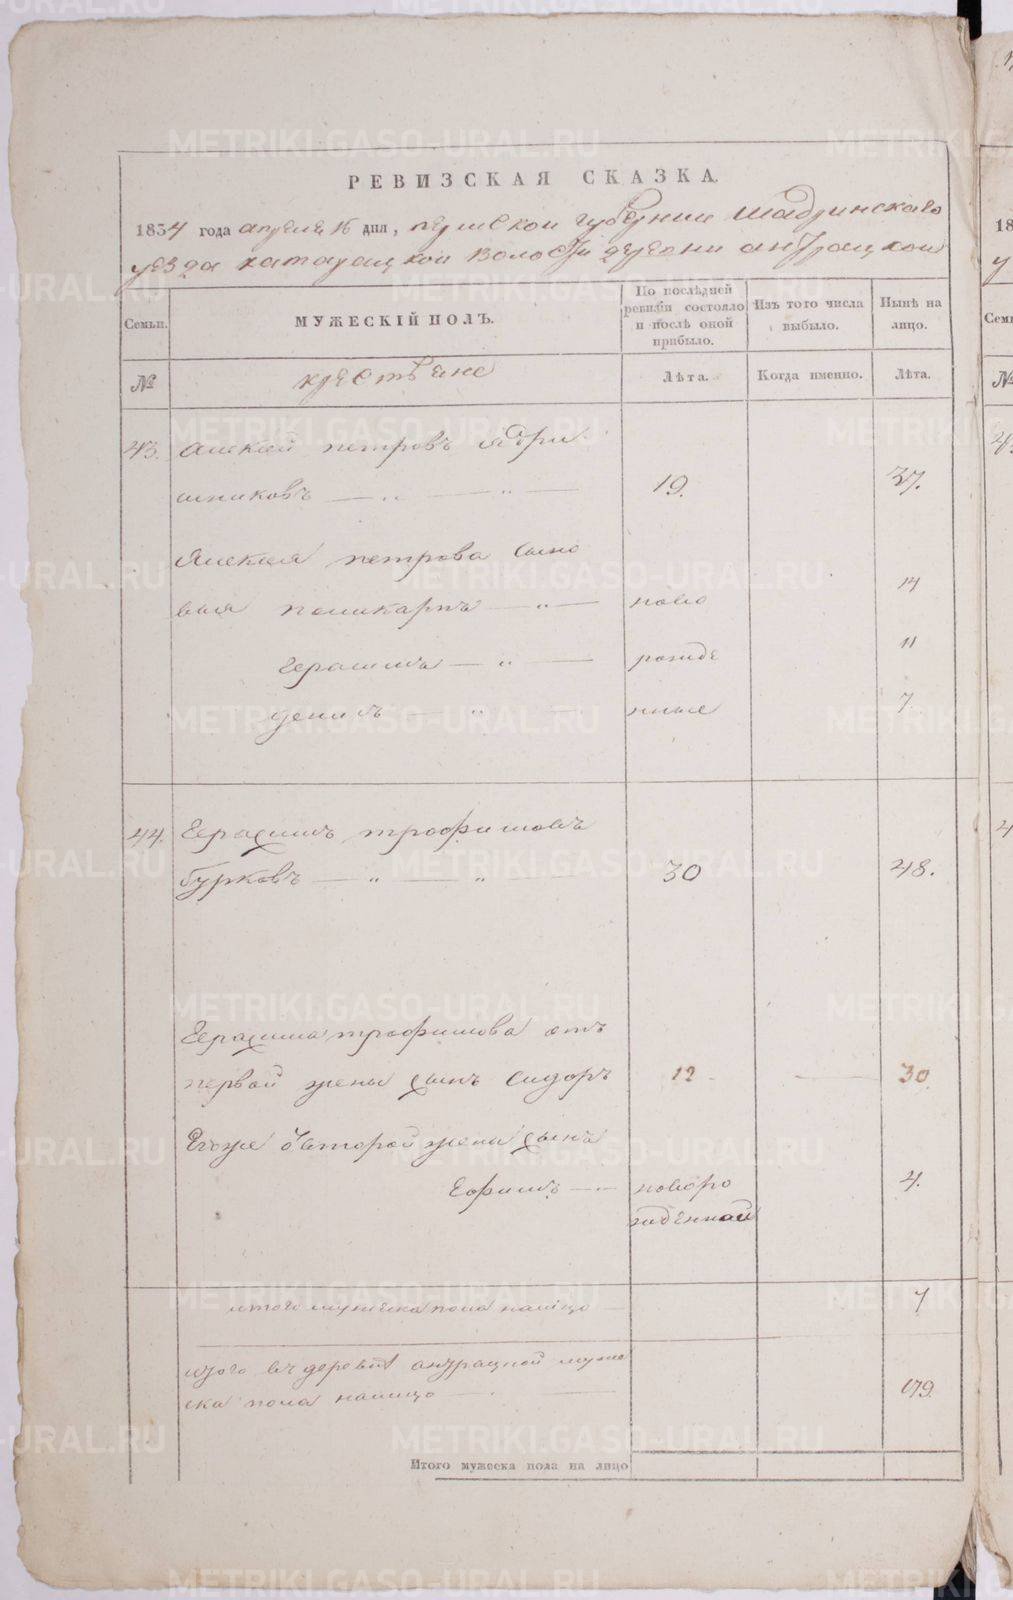 РЕВИЗСКАЯ СКАЗКА.
1834 года апреля 16 дня, пермской губернии шадринскаго
уезда катайской волости деревни
Семьи.
МУЖЕСКІЙ ПОЛ'Ь.
По послѣдней ревизіи состояло и послѣ оной прибыло.
Изъ того числа выбыло.
Нынѣ на лицо.
№
крестьяне
Лѣта.
Когда именно.
Лѣта.
43. алексей петровъ ядри
шниковъ 19. 37.
Алексея петрова сыно
вья поликарпъ ново 14
герасимъ рожде 11
денисъ нные 7.
44. Герасимъ трофимовъ
бурковъ 30 48.
Герасима трофимова отъ
первой жены сынъ сидоръ 12 30
Егоже от второй жены сынъ
Ефимъ новоро 4.
жденной
итого мужеска пола налицо 7
итого въ деревне мужe
ска пола налицо 179.
Итого мужеска пола на лицо
METRIKI.GASO-URAL.RU